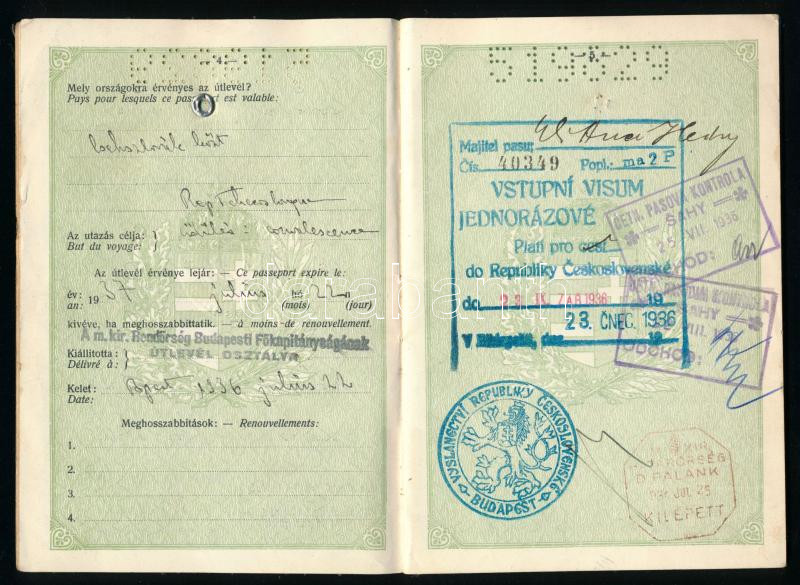 — 4 —
Mely országokra érvényes az útlevél?
Pays pour lesquels ce passeport est valable:
Rep Tchecoslovque
Az utazás célja:
üdülés: convalescence
But du voyage:
Az útlevél érvénye lejár: — Ce passeport expire le:
év: 1937 július hó 22 n
an: (mois) (jour)
kivéve, ha meghosszabbittatik. — à moins de renouvellement.
A m. kir. Rendőrség Budapesti Főkapitányságának
Kiállította:
ÚTLEVÉL OSZTÁLYA
Délivré à:
Kelet: Bpest 1936 július 22
Date:
Meghosszabbítások: — Renouvellements:
1.
2.
3.
4.
— 5 —
519829
Majitel pasu:
Čís. 40349 Popl.: ma 2 P
VSTUPNÍ VISUM
JEDNORÁZOVÉ
Platí pro cest
do Republiky Československé
do 23. ZÁŘ 1936 19
23. ČNEC. 1936
V dne 19
ČETN. PASOVÁ KONTROLA
ŠAHY
25 VII. 1936
ŠAHY
VIII.
ODCHOD:
VYSLANECTVÍ REPUBLIKY ČESKOSLOVENSKÉ
BUDAPEŠŤ
M. KIR.
D. PALÁNK
JUL 25
KILÉPETT
darabanth